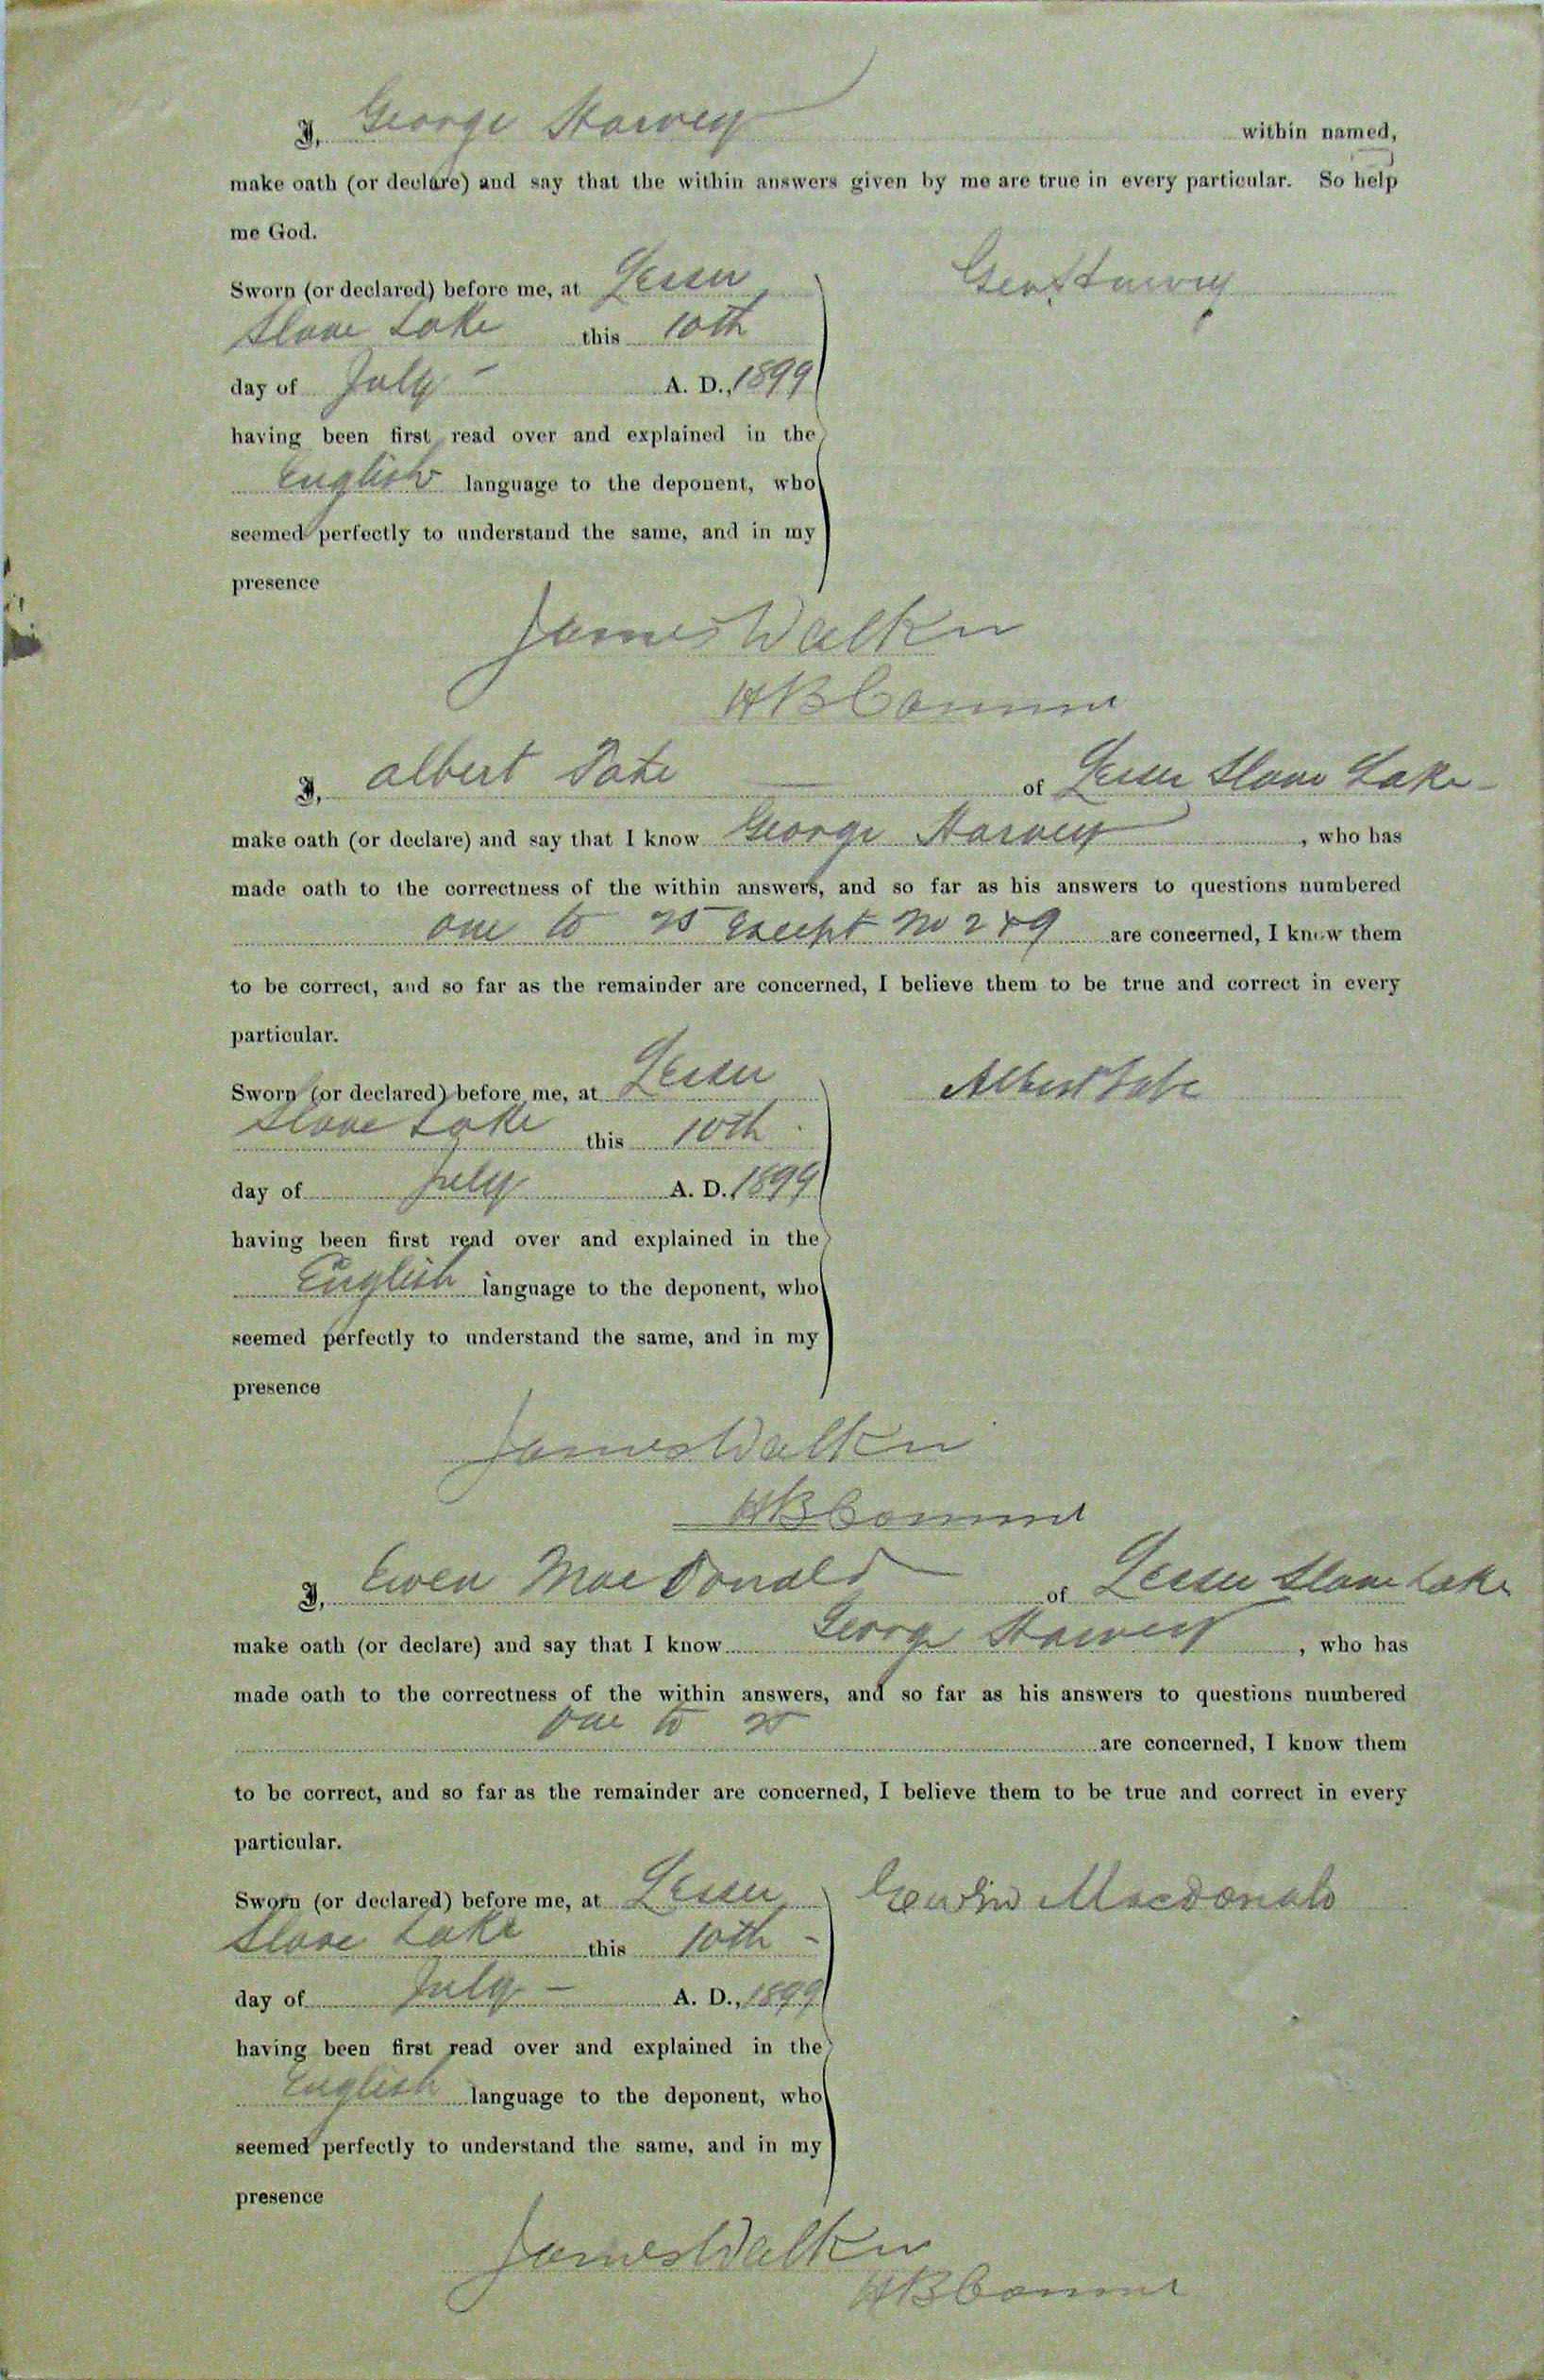 I, George Harvey within named,
make oath (or declare) and say that the within answers given by me are true in every particular. So help
me God.
Sworn (or declared) before me, at Lesser
Slave Lake this 10th
day of July A. D., 1899
having been first read over and explained in the
English language to the deponent, who
seemed perfectly to understand the same, and in my
presence
Geo Harvey
James Walker
HB Comm
I, Albert Tate of Lesser Slave Lake
make oath (or declare) and say that I know George Harvey, who has
made oath to the correctness of the within answers, and so far as his answers to questions numbered
one to except No 2 & 9 are concerned, I know them
to be correct, and so far as the remainder are concerned, I believe them to be true and correct in every
particular.
Sworn (or declared) before me, at Lesser
Slave Lake this 10th
day of July A. D. 1899
having been first read over and explained in the
English language to the deponent, who
seemed perfectly to understand the same, and in my
presence
Albert Tate
James Walker
HB Comm
I, Ewen MacDonald of Lesser Slave Lake
make oath (or declare) and say that I know George Harvey, who has
made oath to the correctness of the within answers, and so far as his answers to questions numbered
one to are concerned, I know them
to be correct, and so far as the remainder are concerned, I believe them to be true and correct in every
particular.
Sworn (or declared) before me, at Lesser
Slave Lake this 10th
day of July A. D., 1899
having been first read over and explained in the
English language to the deponent, who
seemed perfectly to understand the same, and in my
presence
Macdonald
James Walker
HB Comm